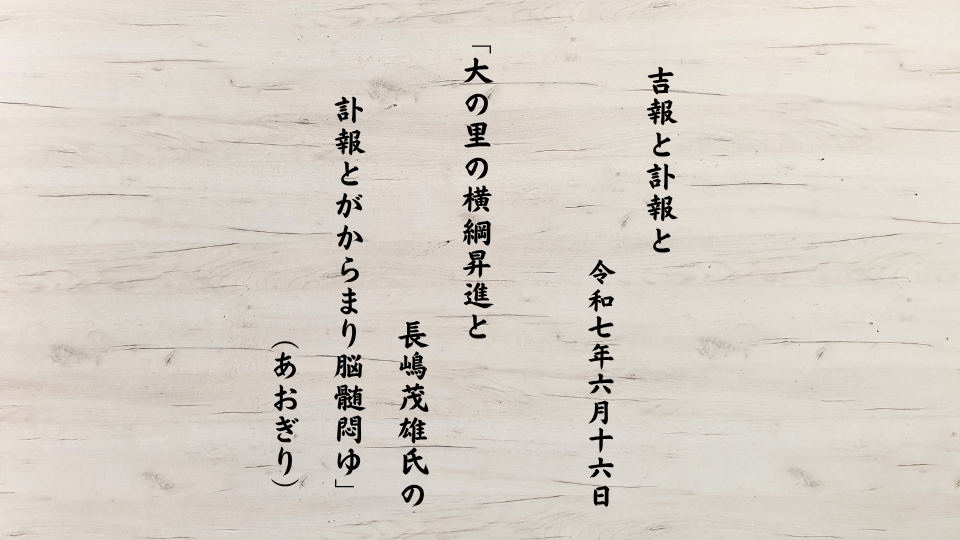 吉報と訃報と
令和七年六月十六日
「大の里の横綱昇進と
長嶋茂雄氏の
訃報とがからまり脳髄悶ゆ」
（あおぎり）